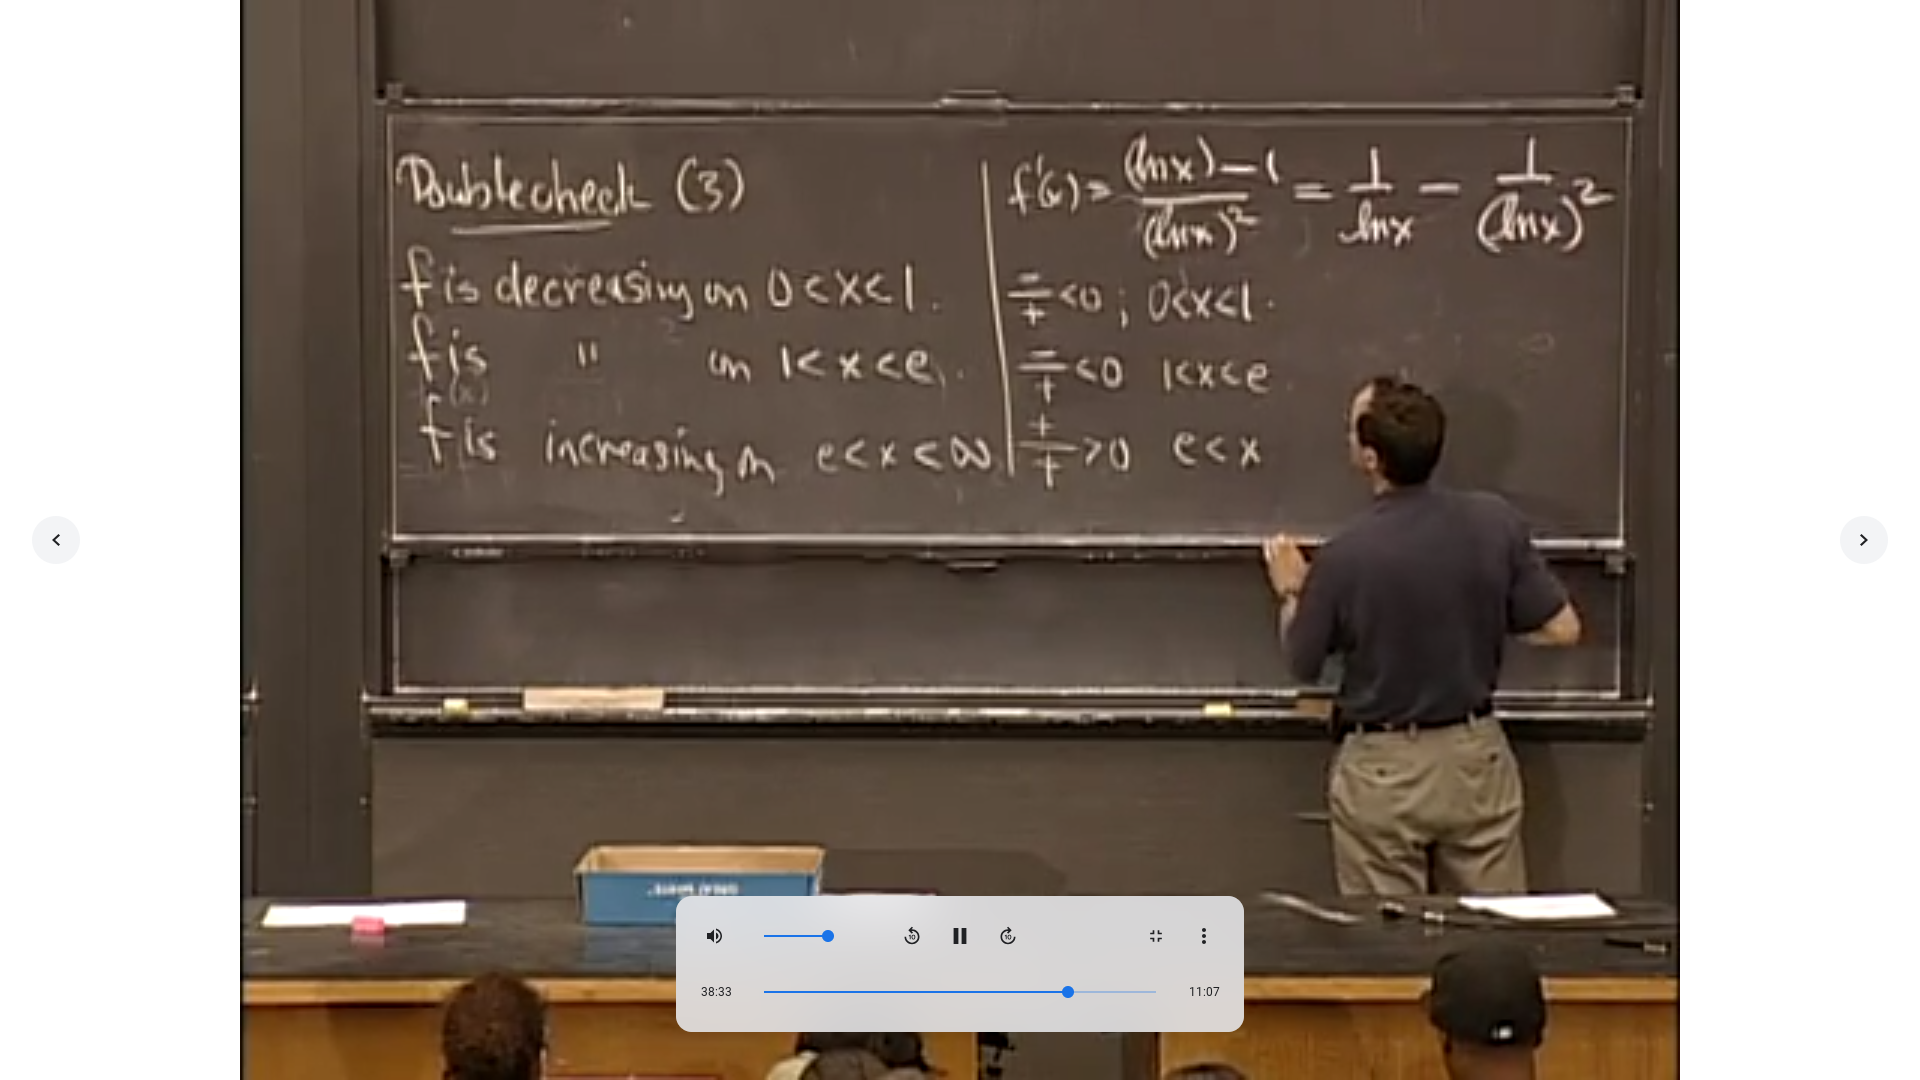 Doublecheck (3)
f is decreasing on 0<x<1.
f is " on 1<x<e.
f is increasing on e<x<∞
f'(x) = ((lnx)-1)/(lnx)² = 1/lnx - 1/(lnx)²
-/+ <0; 0<x<1.
-/+ <0 1<x<e
+/+ >0 e<x
10
10
38:33
11:07